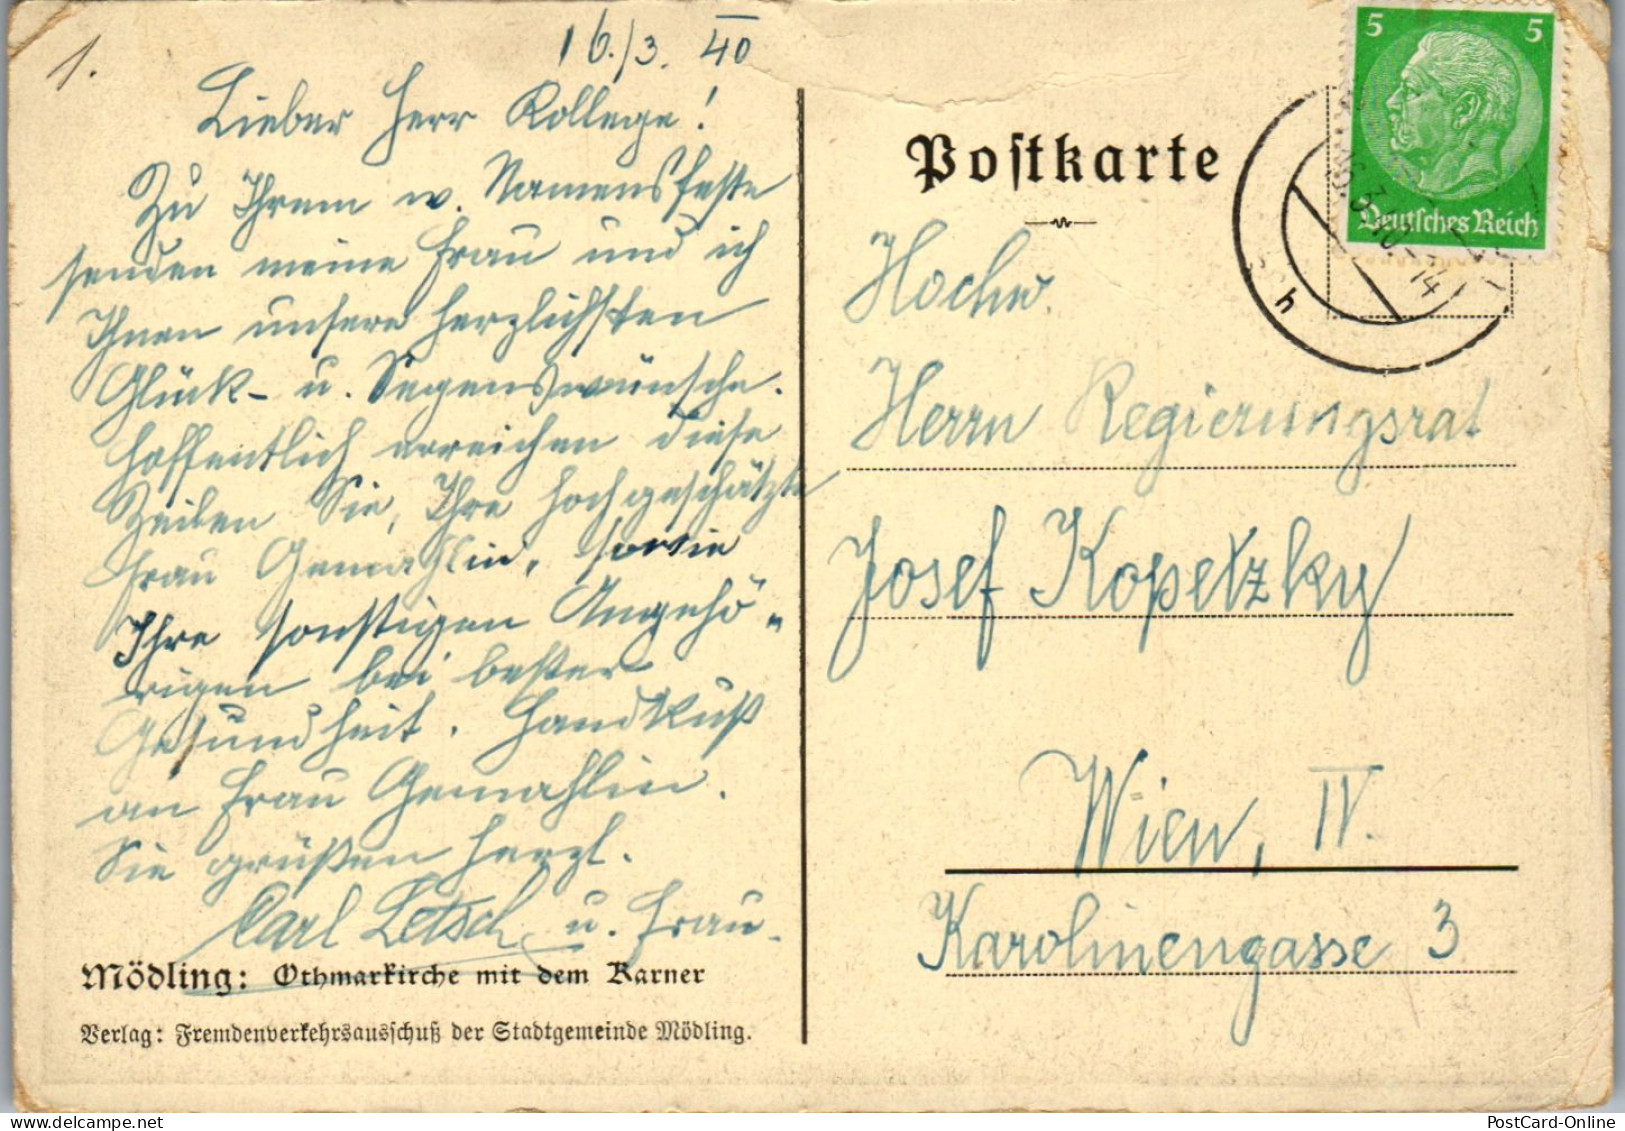 1.
16./3. 40
Lieber Herr Kollege!
Zu Ihrem w. Namensfeste
senden meine Frau und ich
Ihnen unsere herzlichsten
Glück- u. Segenswünsche.
Hoffentlich erreichen diese
Zeilen Sie, Ihre hochgeschätzte
Frau Gemahlin, sowie
Ihre sonstigen Angehö„
rigen bei bester
Gesundheit. Handkuß
an Frau Gemahlin.
Sie grüßen herzl.
Carl Letsch u. Frau.
Mödling: Othmarkirche mit dem Karner
Verlag: Fremdenverkehrsausschuß der Stadtgemeinde Mödling.
Postkarte
5 5
Deutsches Reich
16.3.40.-14
Hochw.
Herrn Regierungsrat
Josef Kopetzky
Wien, IV.
Karolinengasse 3
PostCard-Online